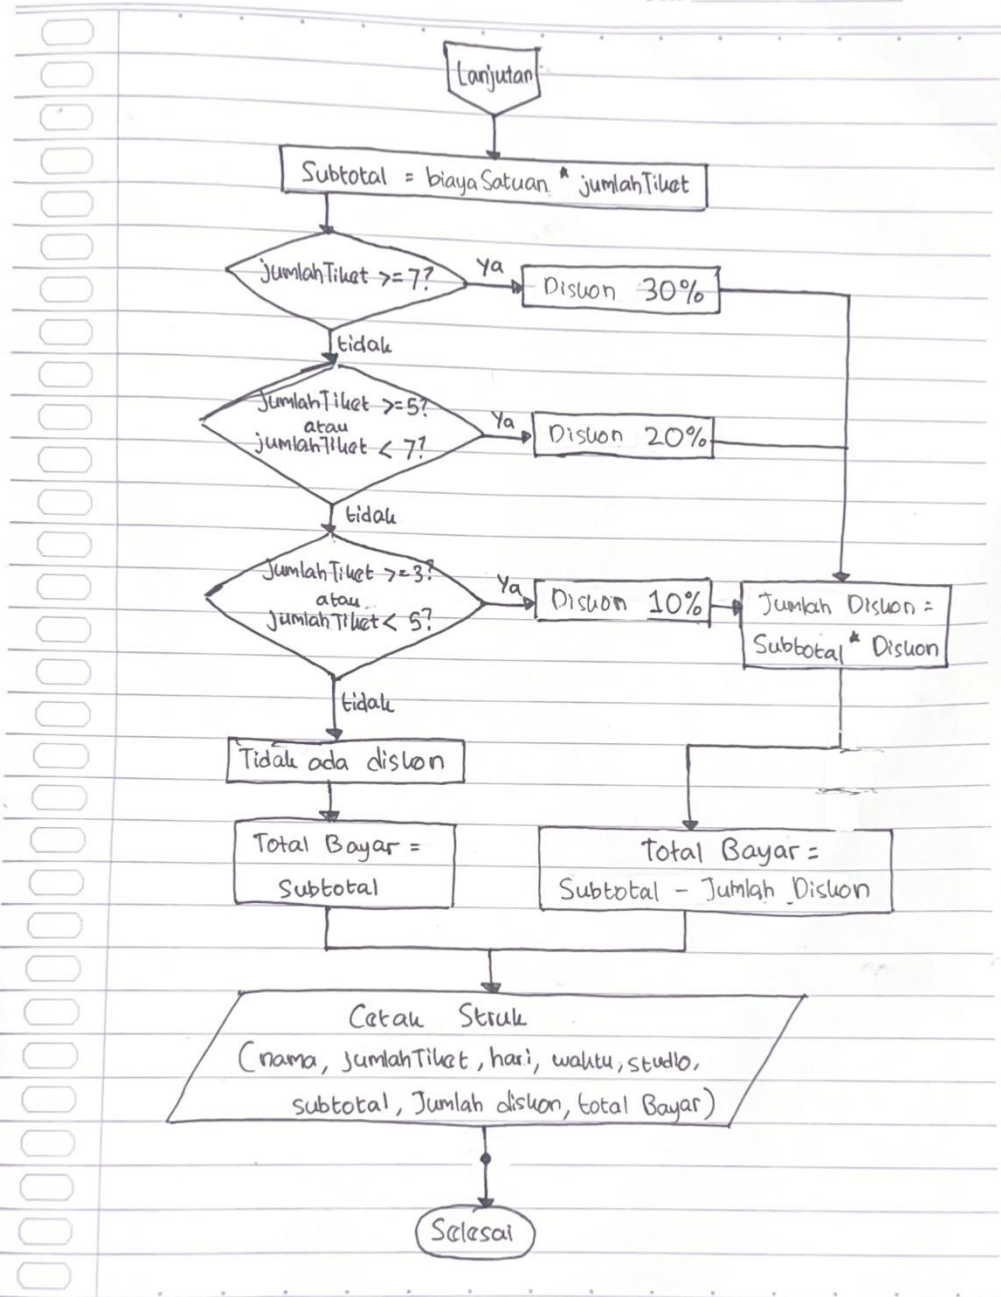 Lanjutan
Subtotal = biayaSatuan * jumlahTiket
jumlahTiket >=7?
Ya
Diskon 30%
tidak
jumlahTiket >=5?
atau
jumlahTiket < 7?
Ya
Diskon 20%
tidak
jumlahTiket >=3?
atau
jumlahTiket < 5?
Ya
Diskon 10%
Jumlah Diskon =
Subtotal * Diskon
tidak
Tidak ada diskon
Total Bayar =
Subtotal
Total Bayar =
Subtotal - Jumlah Diskon
Cetak Struk
(nama, jumlahTiket, hari, waktu, studio,
subtotal, Jumlah diskon, total Bayar)
Selesai